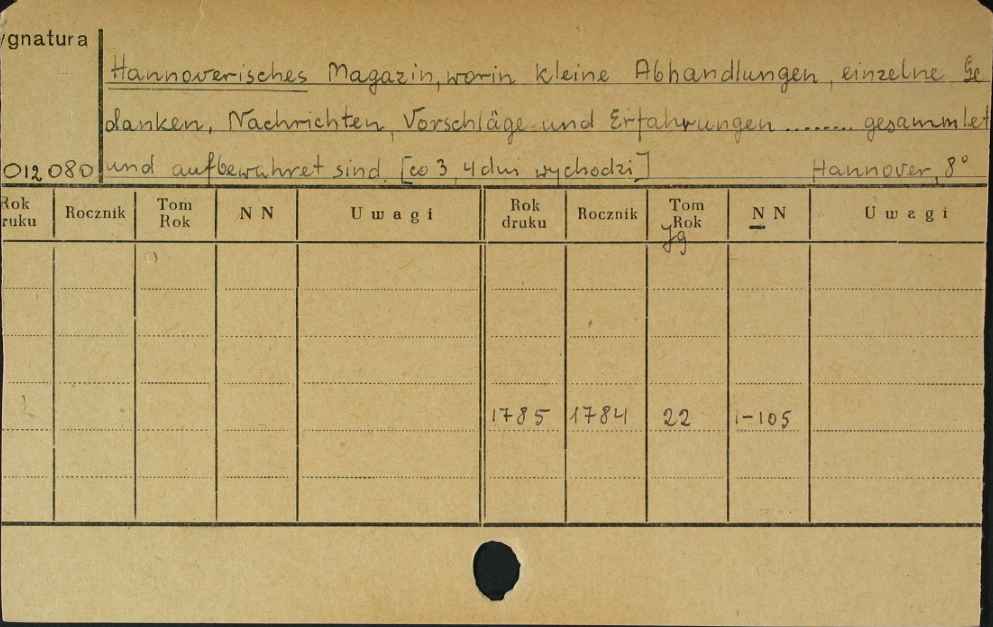 ygnatura
Hannoverisches Magazin, worin kleine Abhandlungen, einzelne Ge
danken, Nachrichten, Vorschläge und Erfahrungen ........ gesammlet
012080 und aufbewahret sind. [co 3, 4 dni wychodzi] Hannover, 8°
Rok ruku Rocznik Tom Rok N N Uwagi Rok druku Rocznik Tom Rok N N Uwagi
Jg
1785 1784 22 1-105